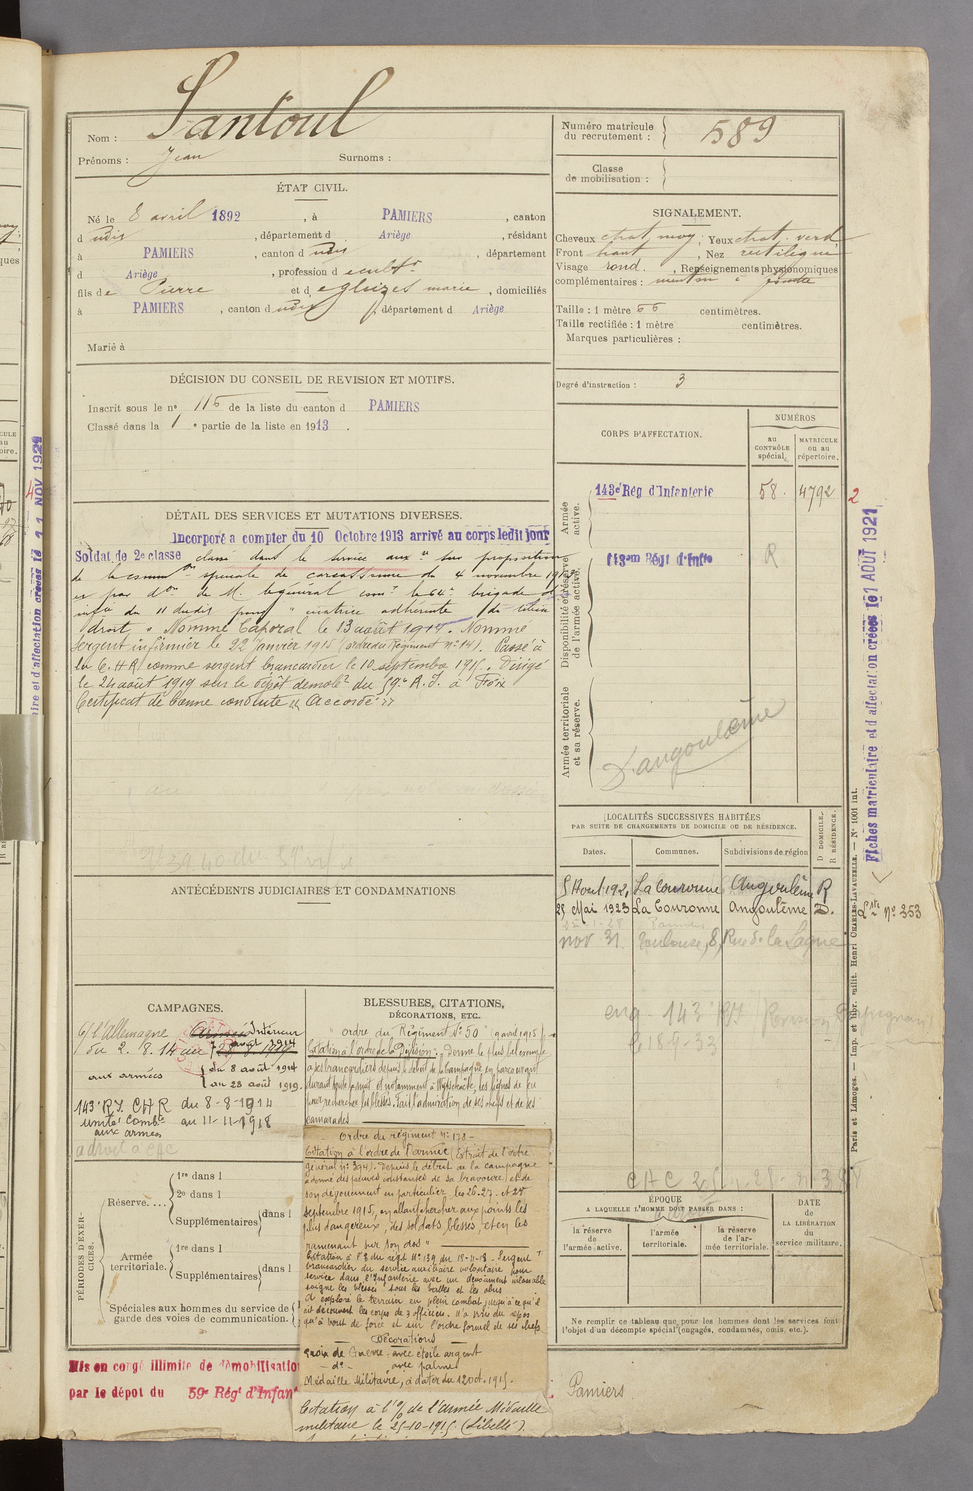 Nom : Santoul
Prénoms : Jean Surnoms :
Numéro matricule du recrutement : 589
Classe de mobilisation :
ÉTAT CIVIL.
Né le 8 avril 1892, à PAMIERS, canton
d udis, département d Ariège, résidant
à PAMIERS, canton d udis, département
d Ariège, profession d
fils de Pierre et d eglizes marie, domiciliés
à PAMIERS, canton d udis, département d Ariège
Marié à
SIGNALEMENT.
Cheveux chat. moy, Yeux chat. verd
Front haut, Nez rectiligne
Visage rond. , Renseignements physionomiques
complémentaires : menton à
Taille : 1 mètre 66 centimètres.
Taille rectifiée : 1 mètre centimètres.
Marques particulières :
Degré d'instruction : 3
DÉCISION DU CONSEIL DE REVISION ET MOTIFS.
Inscrit sous le n° 116 de la liste du canton d PAMIERS
Classé dans la 1 e partie de la liste en 1913.
CORPS D'AFFECTATION.
NUMÉROS
au CONTRÔLE spécial.
MATRICULE ou au répertoire.
Armée active.
143e Rég d'Infanterie 58. 4792
2
Disponibilité et réserve de l'armée active.
113em Régt d'Infie R
Armée territoriale et sa réserve.
D'angoulème
DÉTAIL DES SERVICES ET MUTATIONS DIVERSES.
Incorporé a compter du 10 Octobre 1913 arrivé au corps ledit jour
Soldat de 2e classe classé dans le service aux re sur proposition
de la comm on spéciale de carcassonne du 4 novembre 1913
et par don de M. le général comt la 64e brigade d'
inf ie du 11 dudit pour " cicatrice adhérente du tibia
droit " Nommé Caporal le 13 août 1914. Nommé
sergent infirmier le 22 janvier 1915 (ordre du Régiment n° 141). Passé à
la C.H.R. comme sergent brancardier le 10 septembre 1915. Dirigé
le 24 août 1919 sur le dépôt demob r du 59e R.I. à Foix
Certificat de bonne conduite " Accordé "
ANTÉCÉDENTS JUDICIAIRES ET CONDAMNATIONS
LOCALITÉS SUCCESSIVES HABITÉES
PAR SUITE DE CHANGEMENTS DE DOMICILE OU DE RÉSIDENCE.
Dates. Communes. Subdivisions de région D DOMICILE. R RÉSIDENCE.
5 Aout 1921 La Couronne Angoulême R
25 Mai 1923 La Couronne Angoulême D.
nov 31 Toulouse, 8, Rue de la
143 RI
le 18-9-33
CAMPAGNES.
C/ l'Allemagne Intérieur
du 2. 8. 14 au 7 août 1914
aux armées du 8 août 1914
au 23 août 1919.
143e R.I. CHR du 8-8-1914
unité combte au 11-11-1918
aux armées
a droit à CAC
BLESSURES, CITATIONS,
DÉCORATIONS, ETC.
" ordre du Régiment N° 50 " (9 avril 1915)
Citation à l'ordre de la Division : Donne le plus bel exemple
à ses brancardiers depuis le début de la Campagne en parcourant
durant toute la nuit et notamment à Wytschaete, les lignes de feu
pour rechercher les blessés. Fait l'admiration de ses chefs et de ses
camarades
Ordre du régiment n° 178 -
Citation à l'ordre de l'armée (Extrait de l'ordre
général n° 394). Depuis le début de la campagne
a donné des preuves constantes de sa bravoure et de
son dévouement en particulier les 26-27 et 28
septembre 1915, en allant chercher aux points les
plus dangereux des soldats blessés et en les
ramenant sur son dos "
Citation à l'O du régt N° 139 du 18-11-18 - Sergent
brancardier du service auxiliaire volontaire pour
service dans l'Infanterie avec un dévouement inlassable
soigne les blessés sous les balles et les obus
A exploré le terrain en plein combat jusqu'à ce qu'il
ait découvert les corps de 3 officiers. N'a pris du repos
qu'à bout de force et sur l'ordre formel de ses chefs
Décorations
Croix de Guerre avec étoile argent
- do - avec palme
Médaille Militaire, à dater du 12 oct. 1915.
Citation à l'O/ de l'armée Médaille
militaire le 25-10-1915 (Libellé).
PÉRIODES D'EXERCICES.
Réserve.... 1re dans l
2e dans l
Supplémentaires dans l
Armée territoriale. 1re dans l
Supplémentaires dans l
Spéciales aux hommes du service de
garde des voies de communication.
ÉPOQUE
A LAQUELLE L'HOMME DOIT PASSER DANS :
la réserve de l'armée active.
l'armée territoriale.
la réserve de l'armée territoriale.
DATE de LA LIBÉRATION du service militaire.
Ne remplir ce tableau que pour les hommes dont les services font
l'objet d'un décompte spécial (engagés, condamnés, omis, etc.).
Mis en congé illimité de démobilisation
par le dépot du 59e Régt d'Infan
Pamiers
Fiches matriculaire et d'affectation créées le 1 AOUT 1921
Lste n° 353
Paris et Limoges. — Imp. et libr. milit. Henri CHARLES-LAVAUZELLE. — N° 1001 int.
11 NOV 1921